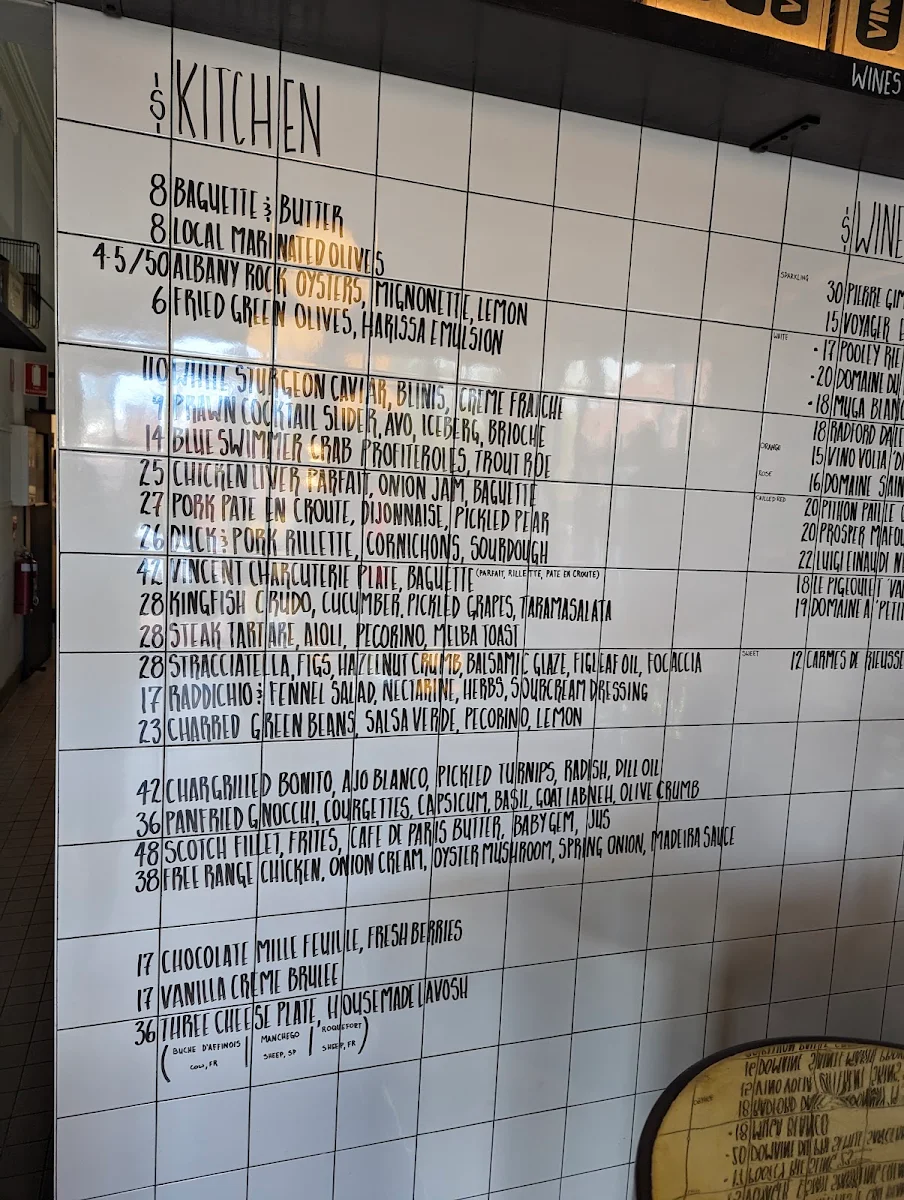 $ KITCHEN
8 BAGUETTE & BUTTER
8 LOCAL MARINATED OLIVES
4.5/50 ALBANY ROCK OYSTERS, MIGNONETTE, LEMON
6 FRIED GREEN OLIVES, HARISSA EMULSION
110 WHITE STURGEON CAVIAR, BLINIS, CREME FRAICHE
9 PRAWN COCKTAIL SLIDER, AVO, ICEBERG, BRIOCHE
14 BLUE SWIMMER CRAB PROFITEROLES, TROUT ROE
25 CHICKEN LIVER PARFAIT, ONION JAM, BAGUETTE
27 PORK PATE EN CROUTE, DIJONNAISE, PICKLED PEAR
26 DUCK & PORK RILLETTE, CORNICHONS, SOURDOUGH
42 VINCENT CHARCUTERIE PLATE, BAGUETTE (PARFAIT, RILLETTE, PATE EN CROUTE)
28 KINGFISH CRUDO, CUCUMBER, PICKLED GRAPES, TARAMASALATA
28 STEAK TARTARE, AIOLI, PECORINO, MELBA TOAST
28 STRACCIATELLA, FIGS, HAZELNUT CRUMB, BALSAMIC GLAZE, FIG LEAF OIL, FOCACCIA
17 RADDICHIO & FENNEL SALAD, NECTARINE, HERBS, SOURCREAM DRESSING
23 CHARRED GREEN BEANS, SALSA VERDE, PECORINO, LEMON
42 CHARGRILLED BONITO, AJO BLANCO, PICKLED TURNIPS, RADISH, DILL OIL
36 PANFRIED GNOCCHI, COURGETTES, CAPSICUM, BASIL, GOAT LABNEH, OLIVE CRUMB
48 SCOTCH FILLET, FRITES, CAFE DE PARIS BUTTER, BABY GEM, JUS
38 FREE RANGE CHICKEN, ONION CREAM, OYSTER MUSHROOM, SPRING ONION, MADEIRA SAUCE
17 CHOCOLATE MILLE FEUILLE, FRESH BERRIES
17 VANILLA CREME BRULEE
36 THREE CHEESE PLATE, HOUSEMADE LAVOSH
(BUCHE D'AFFINOIS | MANCHEGO | ROQUEFORT)
COW, FR SHEEP, SP SHEEP, FR
VIN
WINES
$ WINE
SPARKLING
30 PIERRE GIM
15 VOYAGER E
WHITE
-17 POOLEY RIE
-20 DOMAINE DU
-18 MUGA BLANC
18 RADFORD DALE
ORANGE
15 VINO VOLTA 'DI
ROSE
16 DOMAINE SAIN
CHILLED RED
20 PITHON PAILLE
20 PROSPER MAFOU
22 LUIGI EINAUDI NE
18 LE PIGEOULET 'VA
19 DOMAINE A 'PETIT
SWEET
12 CARMES DE RIEUSSE